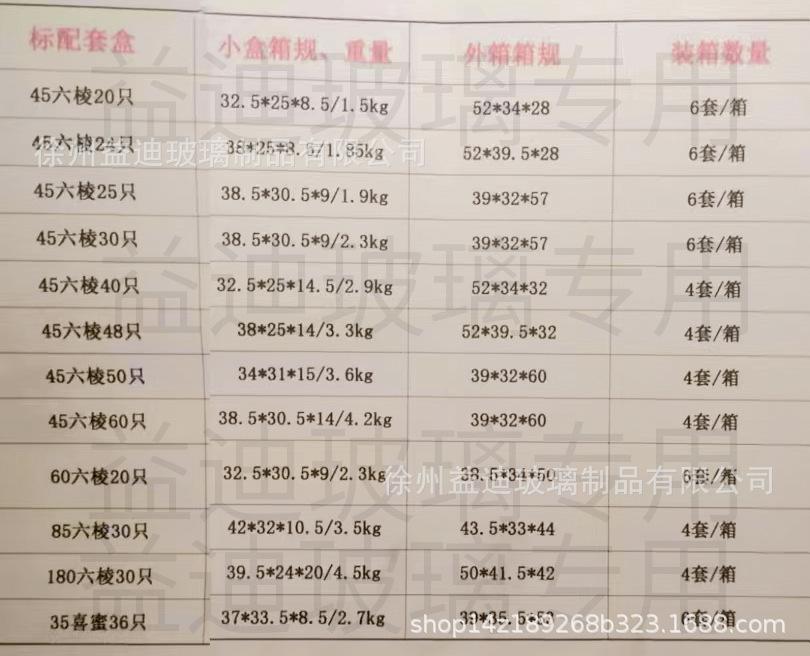 标配套盒 小盒箱规、重量 外箱箱规 装箱数量
45六棱20只 32.5*25*8.5/1.5kg 52*34*28 6套/箱
45六棱24只 38*25*8.5/1.85kg 52*39.5*28 6套/箱
徐州益迪玻璃制品有限公司
45六棱25只 38.5*30.5*9/1.9kg 39*32*57 6套/箱
45六棱30只 38.5*30.5*9/2.3kg 39*32*57 6套/箱
45六棱40只 32.5*25*14.5/2.9kg 52*34*32 4套/箱
45六棱48只 38*25*14/3.3kg 52*39.5*32 4套/箱
45六棱50只 34*31*15/3.6kg 39*32*60 4套/箱
45六棱60只 38.5*30.5*14/4.2kg 39*32*60 4套/箱
60六棱20只 32.5*30.5*9/2.3kg 38.5*34*50 6套/箱
徐州益迪玻璃制品有限公司
85六棱30只 42*32*10.5/3.5kg 43.5*33*44 4套/箱
180六棱30只 39.5*24*20/4.5kg 50*41.5*42 4套/箱
35喜蜜36只 37*33.5*8.5/2.7kg 6套/箱
shop142189268b323.1688.com
益迪玻璃专用
益迪玻璃专用
益迪玻璃专用
益迪玻璃专用